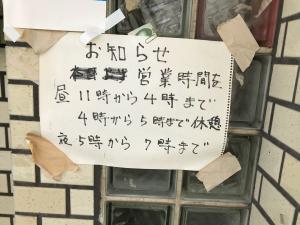 お知らせ
営業時間を
昼 11時から 4時まで
4時から 5時まで休憩
夜 5時から 7時まで